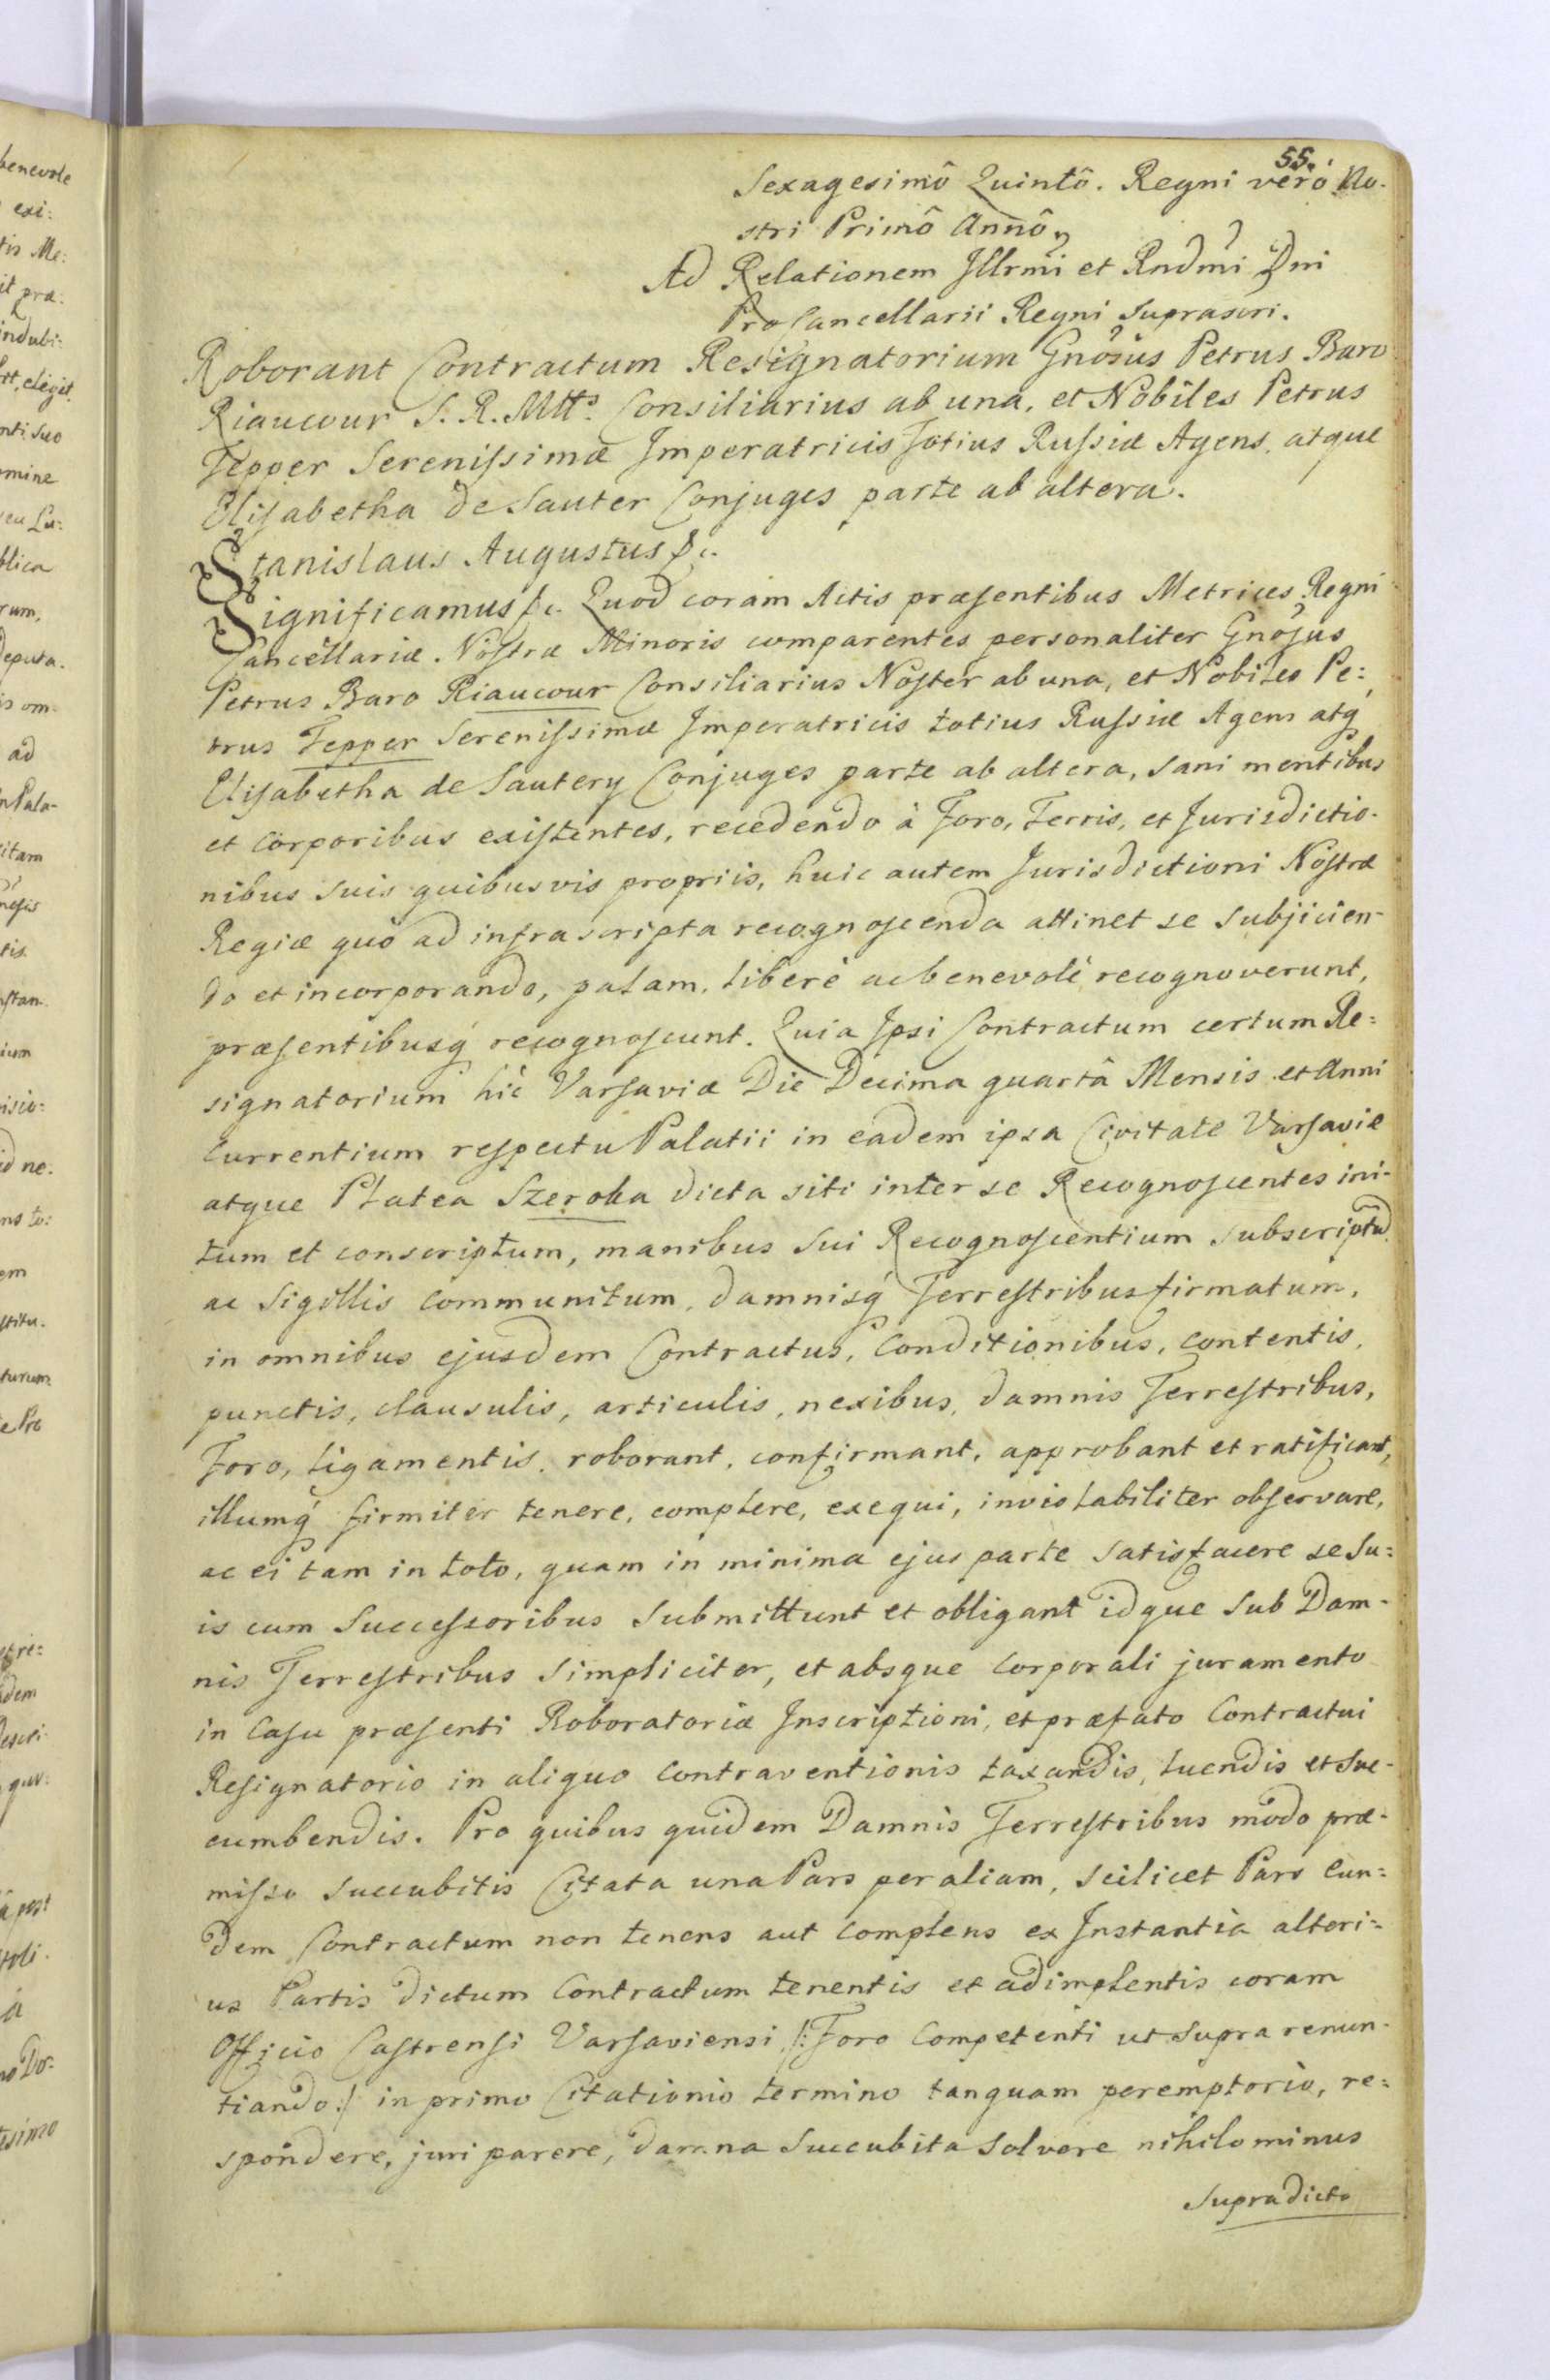 55.
Sexagesimô Quintô. Regni verò No-
stri Primô Annô
Ad Relationem Jllrmi et Rndmi Dni
ProCancellarii Regni Suprascri.
Roborant Contractum Resignatorium Gnosus Petrus Baro
Riaucour S. R. Mtts. Consiliarius ab una, et Nobiles Petrus
Tepper Serenissimæ Imperatricis Totius Russiæ Agens, atque
Elisabetha de Sauter Conjuges parte ab altera.
Stanislaus Augustus &c.
Significamus &c. Quod coram Actis præsentibus Metrices Regni
Cancellariæ Nostræ Minoris comparentes personaliter Gnosus
Petrus Baro Riaucour Consiliarius Noster ab una, et Nobiles Pe:
trus Tepper Serenissimæ Imperatricis totius Russiæ Agens atq
Elisabetha de Sautery Conjuges parte ab altera, sani mentibus
et corporibus existentes, recedendo à Foro, Terris, et Jurisdictio-
nibus suis quibusvis propriis, huic autem Jurisdictioni Nostræ
Regiæ quò ad infrascripta recognoscenda attinet se subjicien-
do et incorporando, palam, liberè ac benevolè recognoverunt,
præsentibusq recognoscunt. Quia Ipsi Contractum certum Re:
signatorium hîc Varsaviæ Die Decima quartâ Mensis et Anni
currentium respectu Palatii in eadem ipsa Civitate Varsaviæ
atque Platea Szeroka dicta siti inter se Recognoscentes ini-
tum et conscriptum, manibus sui Recognoscentium subscriptu
ac Sigillis communitum, damnisq Terrestribus firmatum,
in omnibus ejusdem Contractus, Conditionibus, contentis,
punctis, clausulis, articulis, nexibus, damnis Terrestribus,
Foro, ligamentis, roborant, confirmant, approbant et ratificant,
illumq firmiter tenere, complere, exequi, inviolabiliter observare,
ac ei tam in toto, quam in minima ejus parte satisfacere se su:
is cum Successoribus submittunt et obligant idque sub Dam-
nis Terrestribus simpliciter, et absque corporali juramento
in Casu præsenti Roboratoriæ Inscriptioni, et præfato Contractui
Resignatorio in aliquo contraventionis taxandis, luendis et suc-
cumbendis. Pro quibus quidem Damnis Terrestribus modo præ-
misso succubitis Citata una Pars per aliam, scilicet Pars Eun:
dem Contractum non tenens aut complens ex Instantia alteri:
us Partis dictum Contractum tenentis et adimplentis coram
Officio Castrensi Varsaviensi /: Foro Competenti ut supra renun-
tiando :/ in primo Citationis termino tanquam peremptorio, re:
spondere, juri parere, damna succubita solvere nihilominus
Supradicto